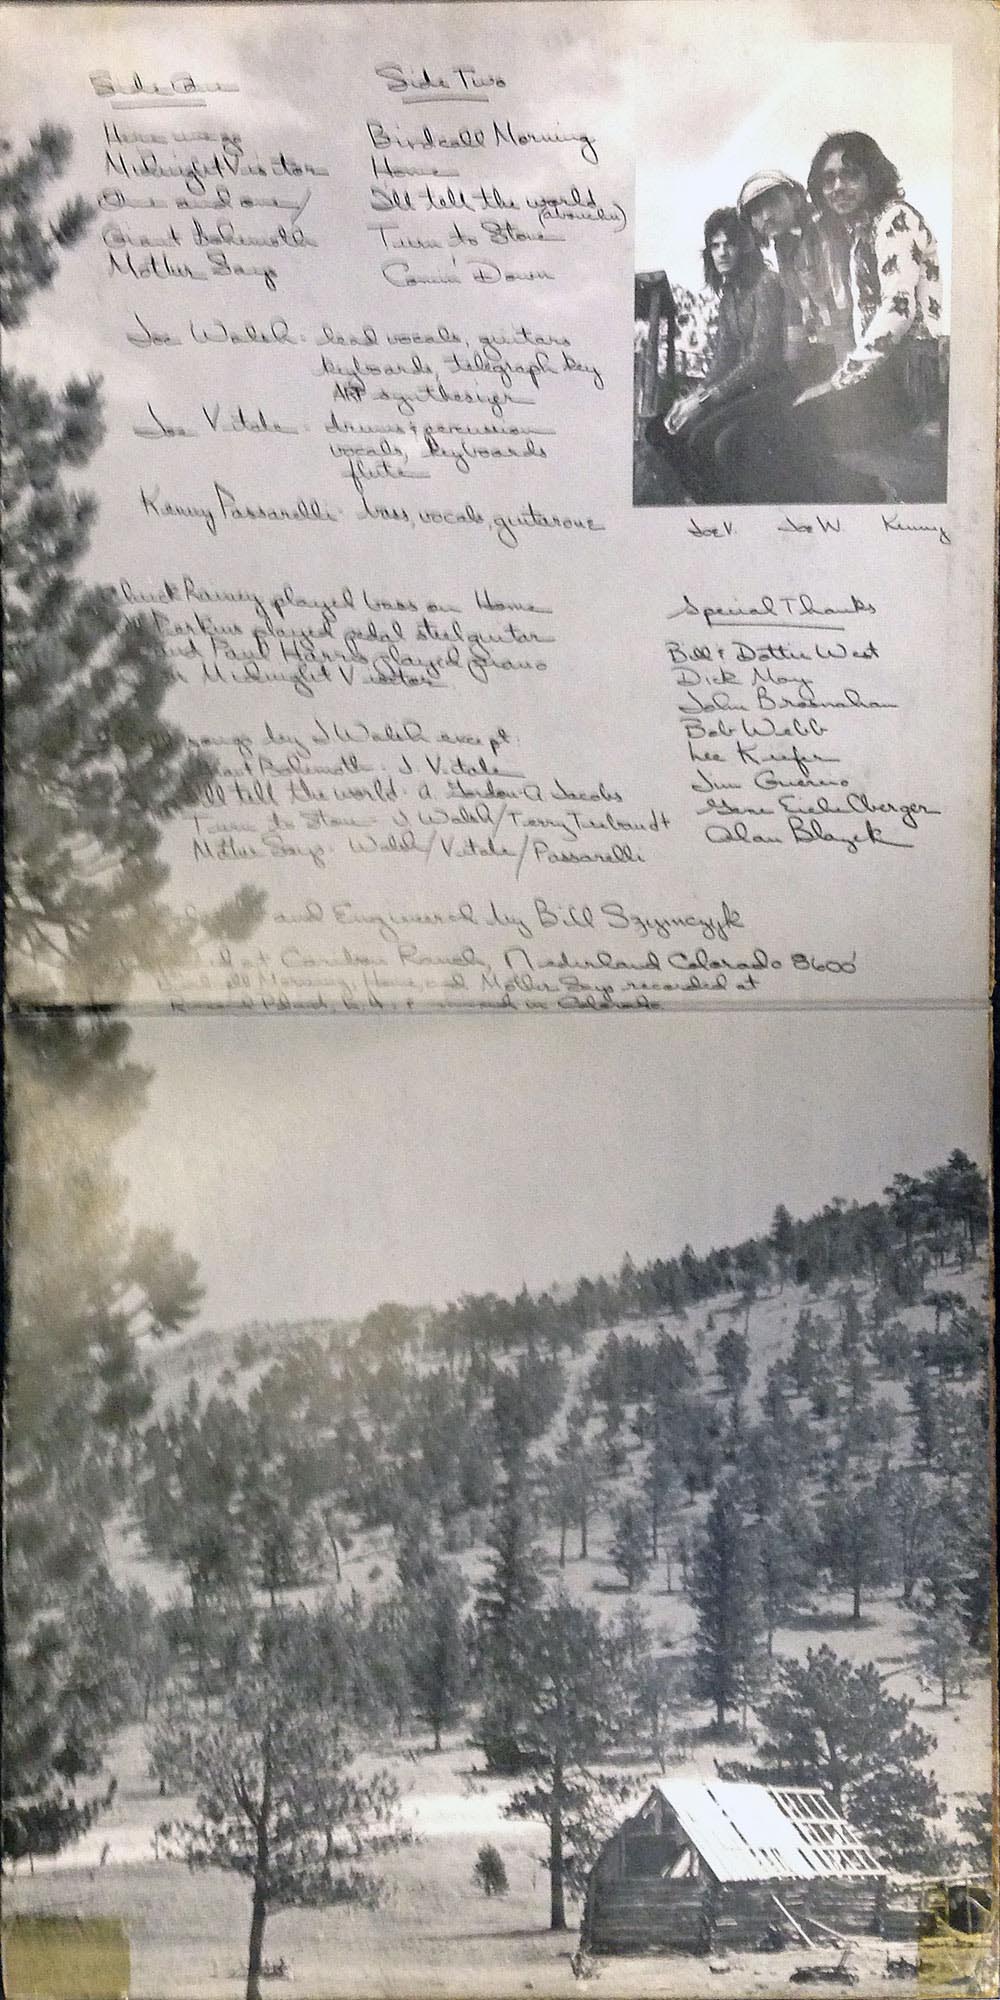 Side One
Here we go
Midnight Visitor
One and one
Giant Bohemoth
Mother Says
Side Two
Birdcall Morning
Home
I'll tell the world
(aboucha)
Turn to Stone
Comin' Down
Joe Walsh: lead vocals, guitars
keyboards, telegraph key
ARP synthesizer
Joe Vitale: drums & percussion
vocals, keyboards
flute
Kenny Passarelli: bass, vocals, guitarone
Joe V. Joe W. Kenny
Chuck Rainey played bass on Home
Perkins played pedal steel guitar
and Paul Harris played piano
on Midnight Visitor
songs by J Walsh except:
Giant Bohemoth - J. Vitale
I'll tell the world - A. Gordon - A Jacobs
Turn to Stone - J. Walsh/Terry Trebandt
Mother Says - Walsh/Vitale/Passarelli
Special Thanks
Bill & Dottie West
Dick May
John Brosnahan
Bob Webb
Lee Keefer
Jim Guercio
Gene Eichelberger
Alan Blazek
and Engineered by Bill Szymczyk
at Caribou Ranch, Nederland Colorado 8600'
Birdcall Morning, Home, and Mother Says recorded at
Record Plant, L.A., & in Colorado